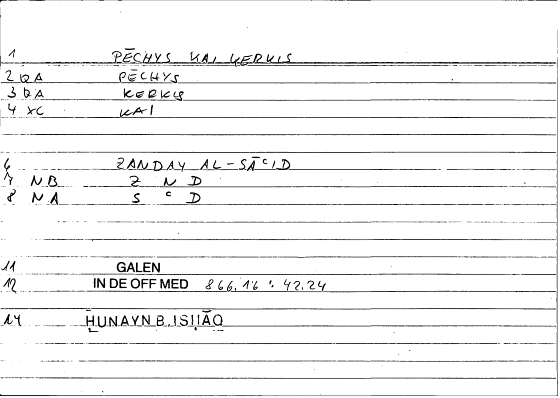 1 PĒCHYS KAI KERKIS
2 QA PĒCHYS
3 QA KERKIS
4 XC KAI
6 ZANDAY AL-SĀCID
7 NB Z N D
8 NA S C D
11 GALEN
12 IN DE OFF MED 866.16 : 42.24
14 ḤUNAYN B. ISḤĀQ